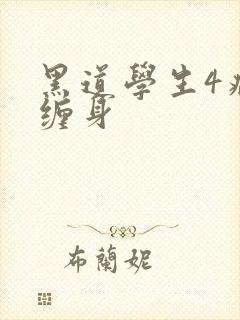 黑道學生4
缠身
布蘭妮